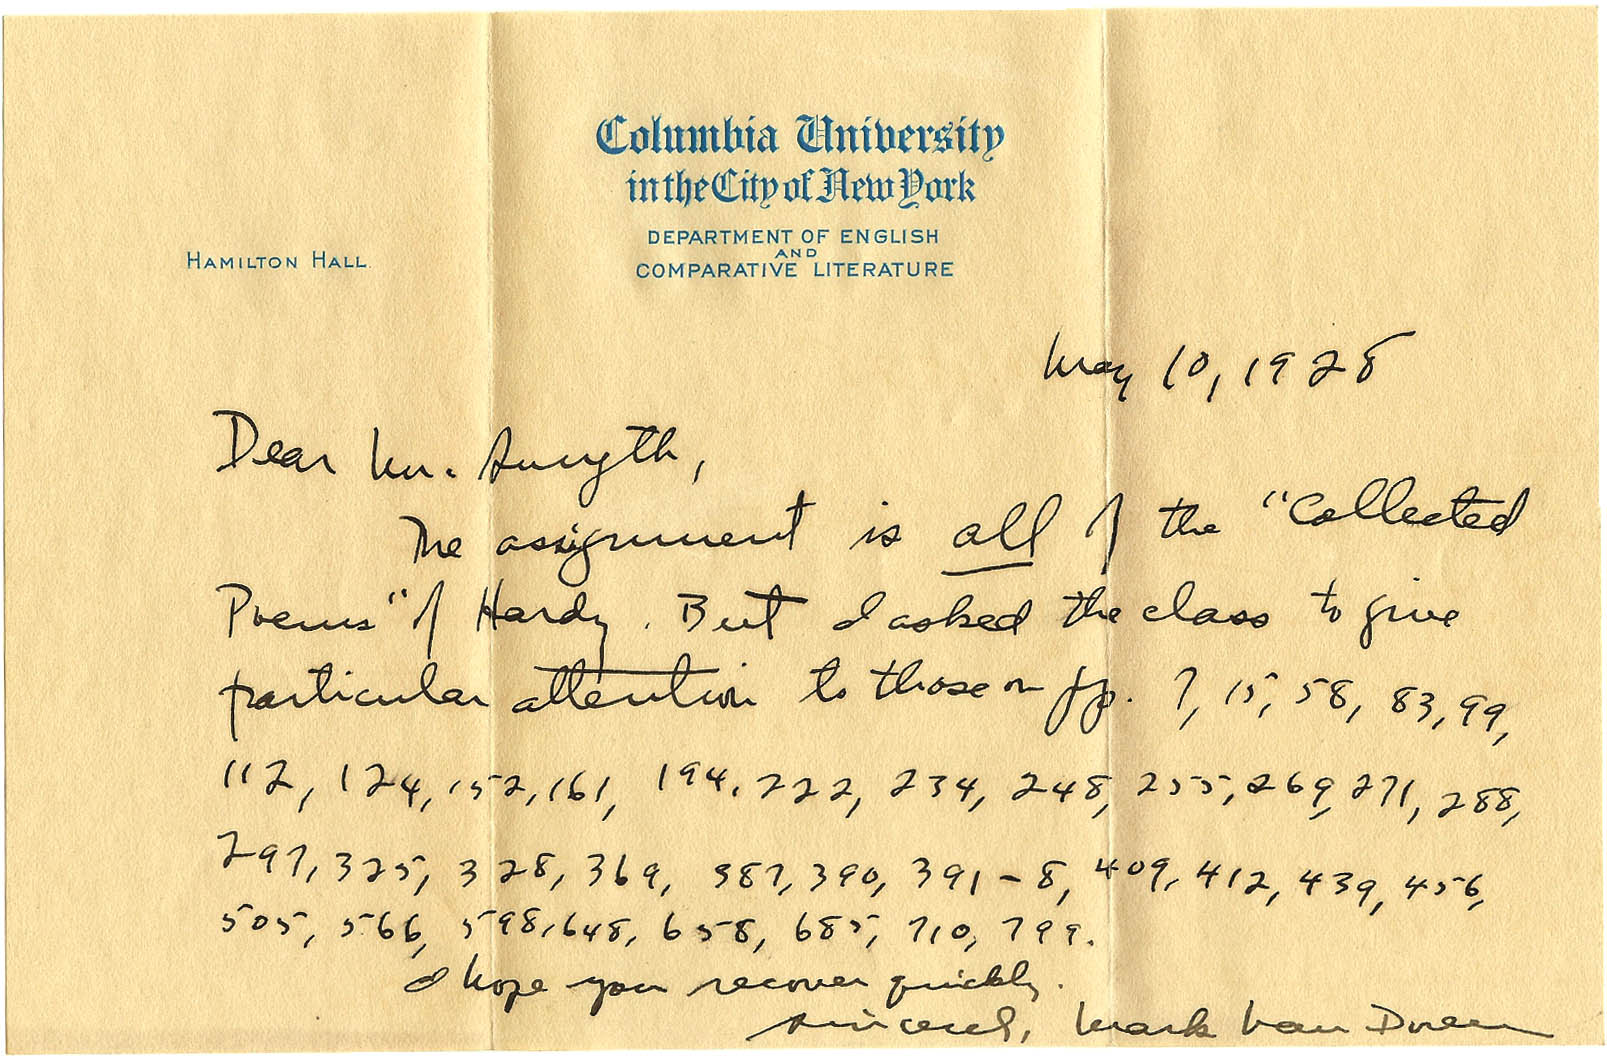 Columbia University
in the City of New York
DEPARTMENT OF ENGLISH
AND
COMPARATIVE LITERATURE
HAMILTON HALL
May 10, 1928
Dear Mr. Smyth,
The assignment is all of the "Collected
Poems" of Hardy. But I asked the class to give
particular attention to those on pp. 7, 15, 58, 83, 99,
112, 124, 152, 161, 194, 222, 234, 248, 255, 269, 271, 288,
297, 325, 328, 369, 387, 390, 391-8, 409, 412, 439, 456,
505, 566, 598, 648, 658, 685, 710, 799.
I hope you recover quickly.
Sincerely, Mark Van Doren